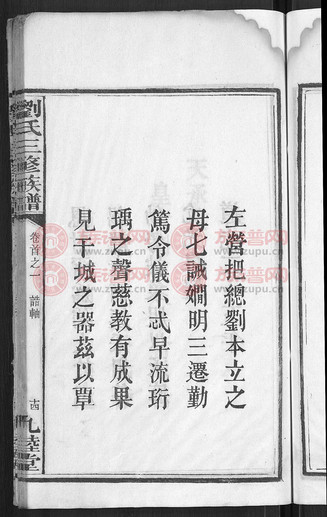 左營把總劉本立之
母七誠嫺明三遷勤
篤令儀不忒早流珩
瑀之聲慈教有成果
見干城之器茲以覃
劉氏三修族譜
卷首之一 誥軸
十四
七睦堂
族譜网
www.zupu.cn